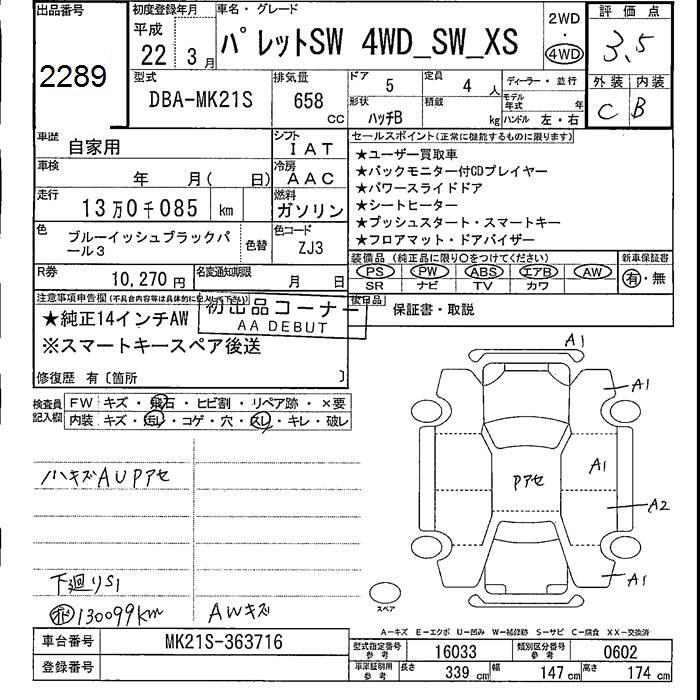 出品番号
2289
初度登録年月
平成
22年 3月
車名・グレード
パレットSW 4WD_SW_XS
2WD
・
4WD
評価点
3.5
外装 内装
C B
型式
DBA-MK21S
排気量
658 CC
ドア 5
定員 4 人
形状 ハッチB
積載 kg
ディーラー・並行
モデル年式 年
ハンドル 左・右
車歴 自家用
シフト IAT
車検 年 月( 日)
冷房 AAC
走行 13万0千085 km
燃料 ガソリン
色 ブルーイッシュブラックパール3
色替
色コード ZJ3
R券 10,270円
名変通知期限 月 日
セールスポイント(正常に機能するものに限ります)
★ユーザー買取車
★バックモニター付CDプレイヤー
★パワースライドドア
★シートヒーター
★プッシュスタート・スマートキー
★フロアマット・ドアバイザー
装備品 (純正品に限り○をつけてください)
PS PW ABS エアB AW
SR ナビ TV カワ
新車保証書
有・無
後日品
保証書・取説
注意事項申告欄(不具合内容等は具体的に記入して下さい)
★純正14インチAW
※スマートキースペア後送
初出品コーナー
AA DEBUT
修復歴 有〔箇所 〕
検査員記入欄
FW キズ・飛石・ヒビ割・リペア跡・×要
内装 キズ・汚レ・コゲ・穴・スレ・キレ・破レ
ハキズAUPアセ
下廻りS1
130099km
AWキズ
A1
A1
A1
Pアセ
A2
A1
スペア
A-キズ E-エクボ U-凹み W-補修跡 S-サビ C-腐食 XX-交換済
車台番号 MK21S-363716
登録番号
型式指定番号 参考 16033
類別区分番号 参考 0602
車庫証明用 参考 長さ 339 cm 幅 147 cm 高さ 174 cm